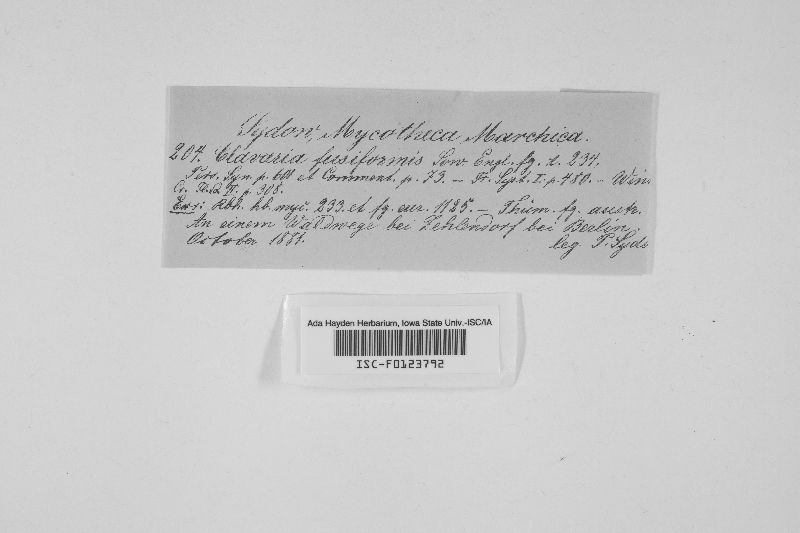 Sydow, Mycotheca Marchica.
207. Clavaria fusiformis Sow. Engl. fg. t. 234.
Pers. Syn. p. 601 et Comment. p. 73. – Fr. Syst. I. p. 480. – Win
Cr. Fl. II. p. 308.
Exs: Rbh. hb. myc. 233. et fg. eur. 1125. – Thüm. fg. austr.
An einem Waldwege bei Zehlendorf bei Berlin,
October 1881. leg. P. Sydo
Ada Hayden Herbarium, Iowa State Univ.-ISC/IA
ISC-F0123792